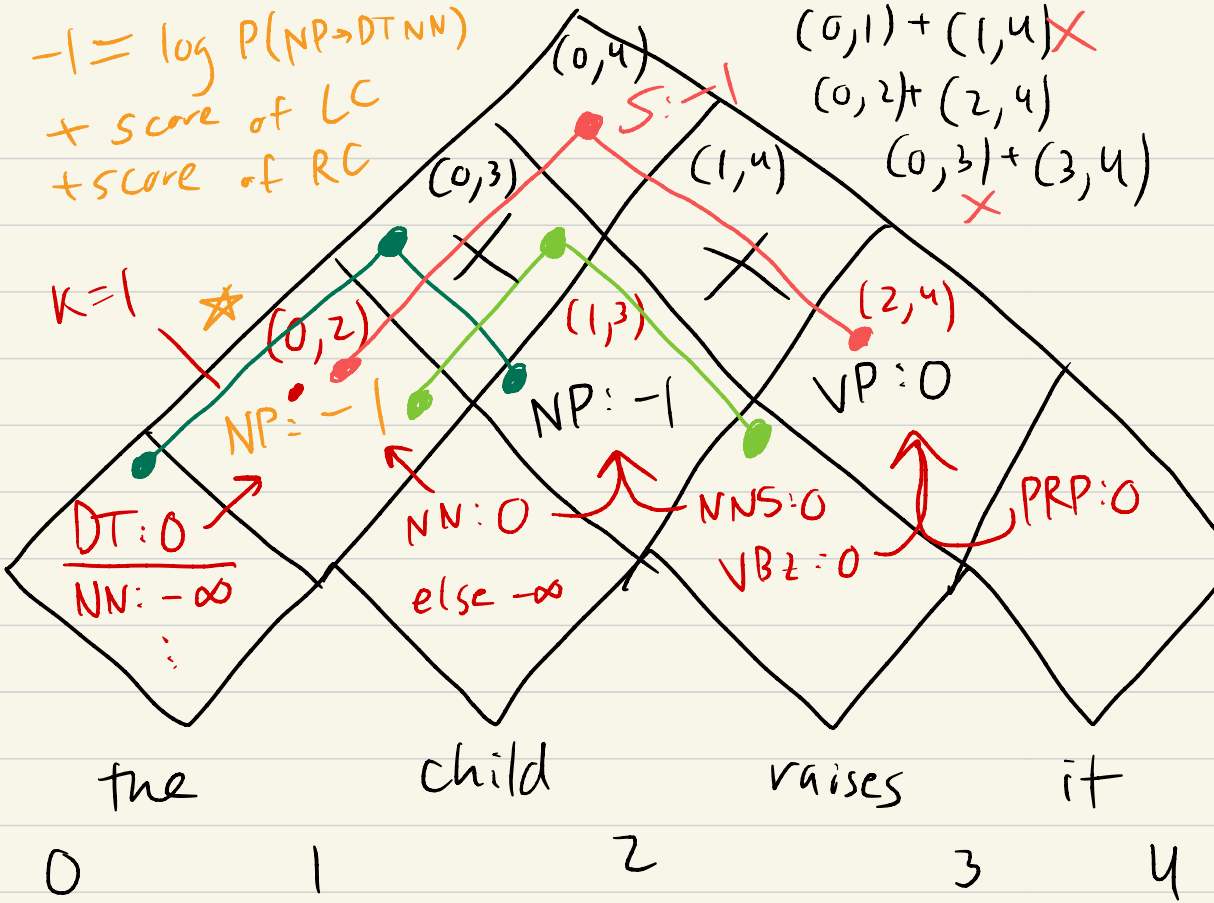 -1 = log P(NP→DT NN)
+ score of LC
+ score of RC
(0,1) + (1,4) X
(0,2) + (2,4)
(0,3) + (3,4)
X
(0,4)
S: -1
(0,3)
(1,4)
K=1
(0,2)
(1,3)
(2,4)
NP: -1
NP: -1
VP: 0
DT: 0
NN: -∞
⋮
NN: 0
else -∞
NNS: 0
VBZ: 0
PRP: 0
the child raises it
0 1 2 3 4